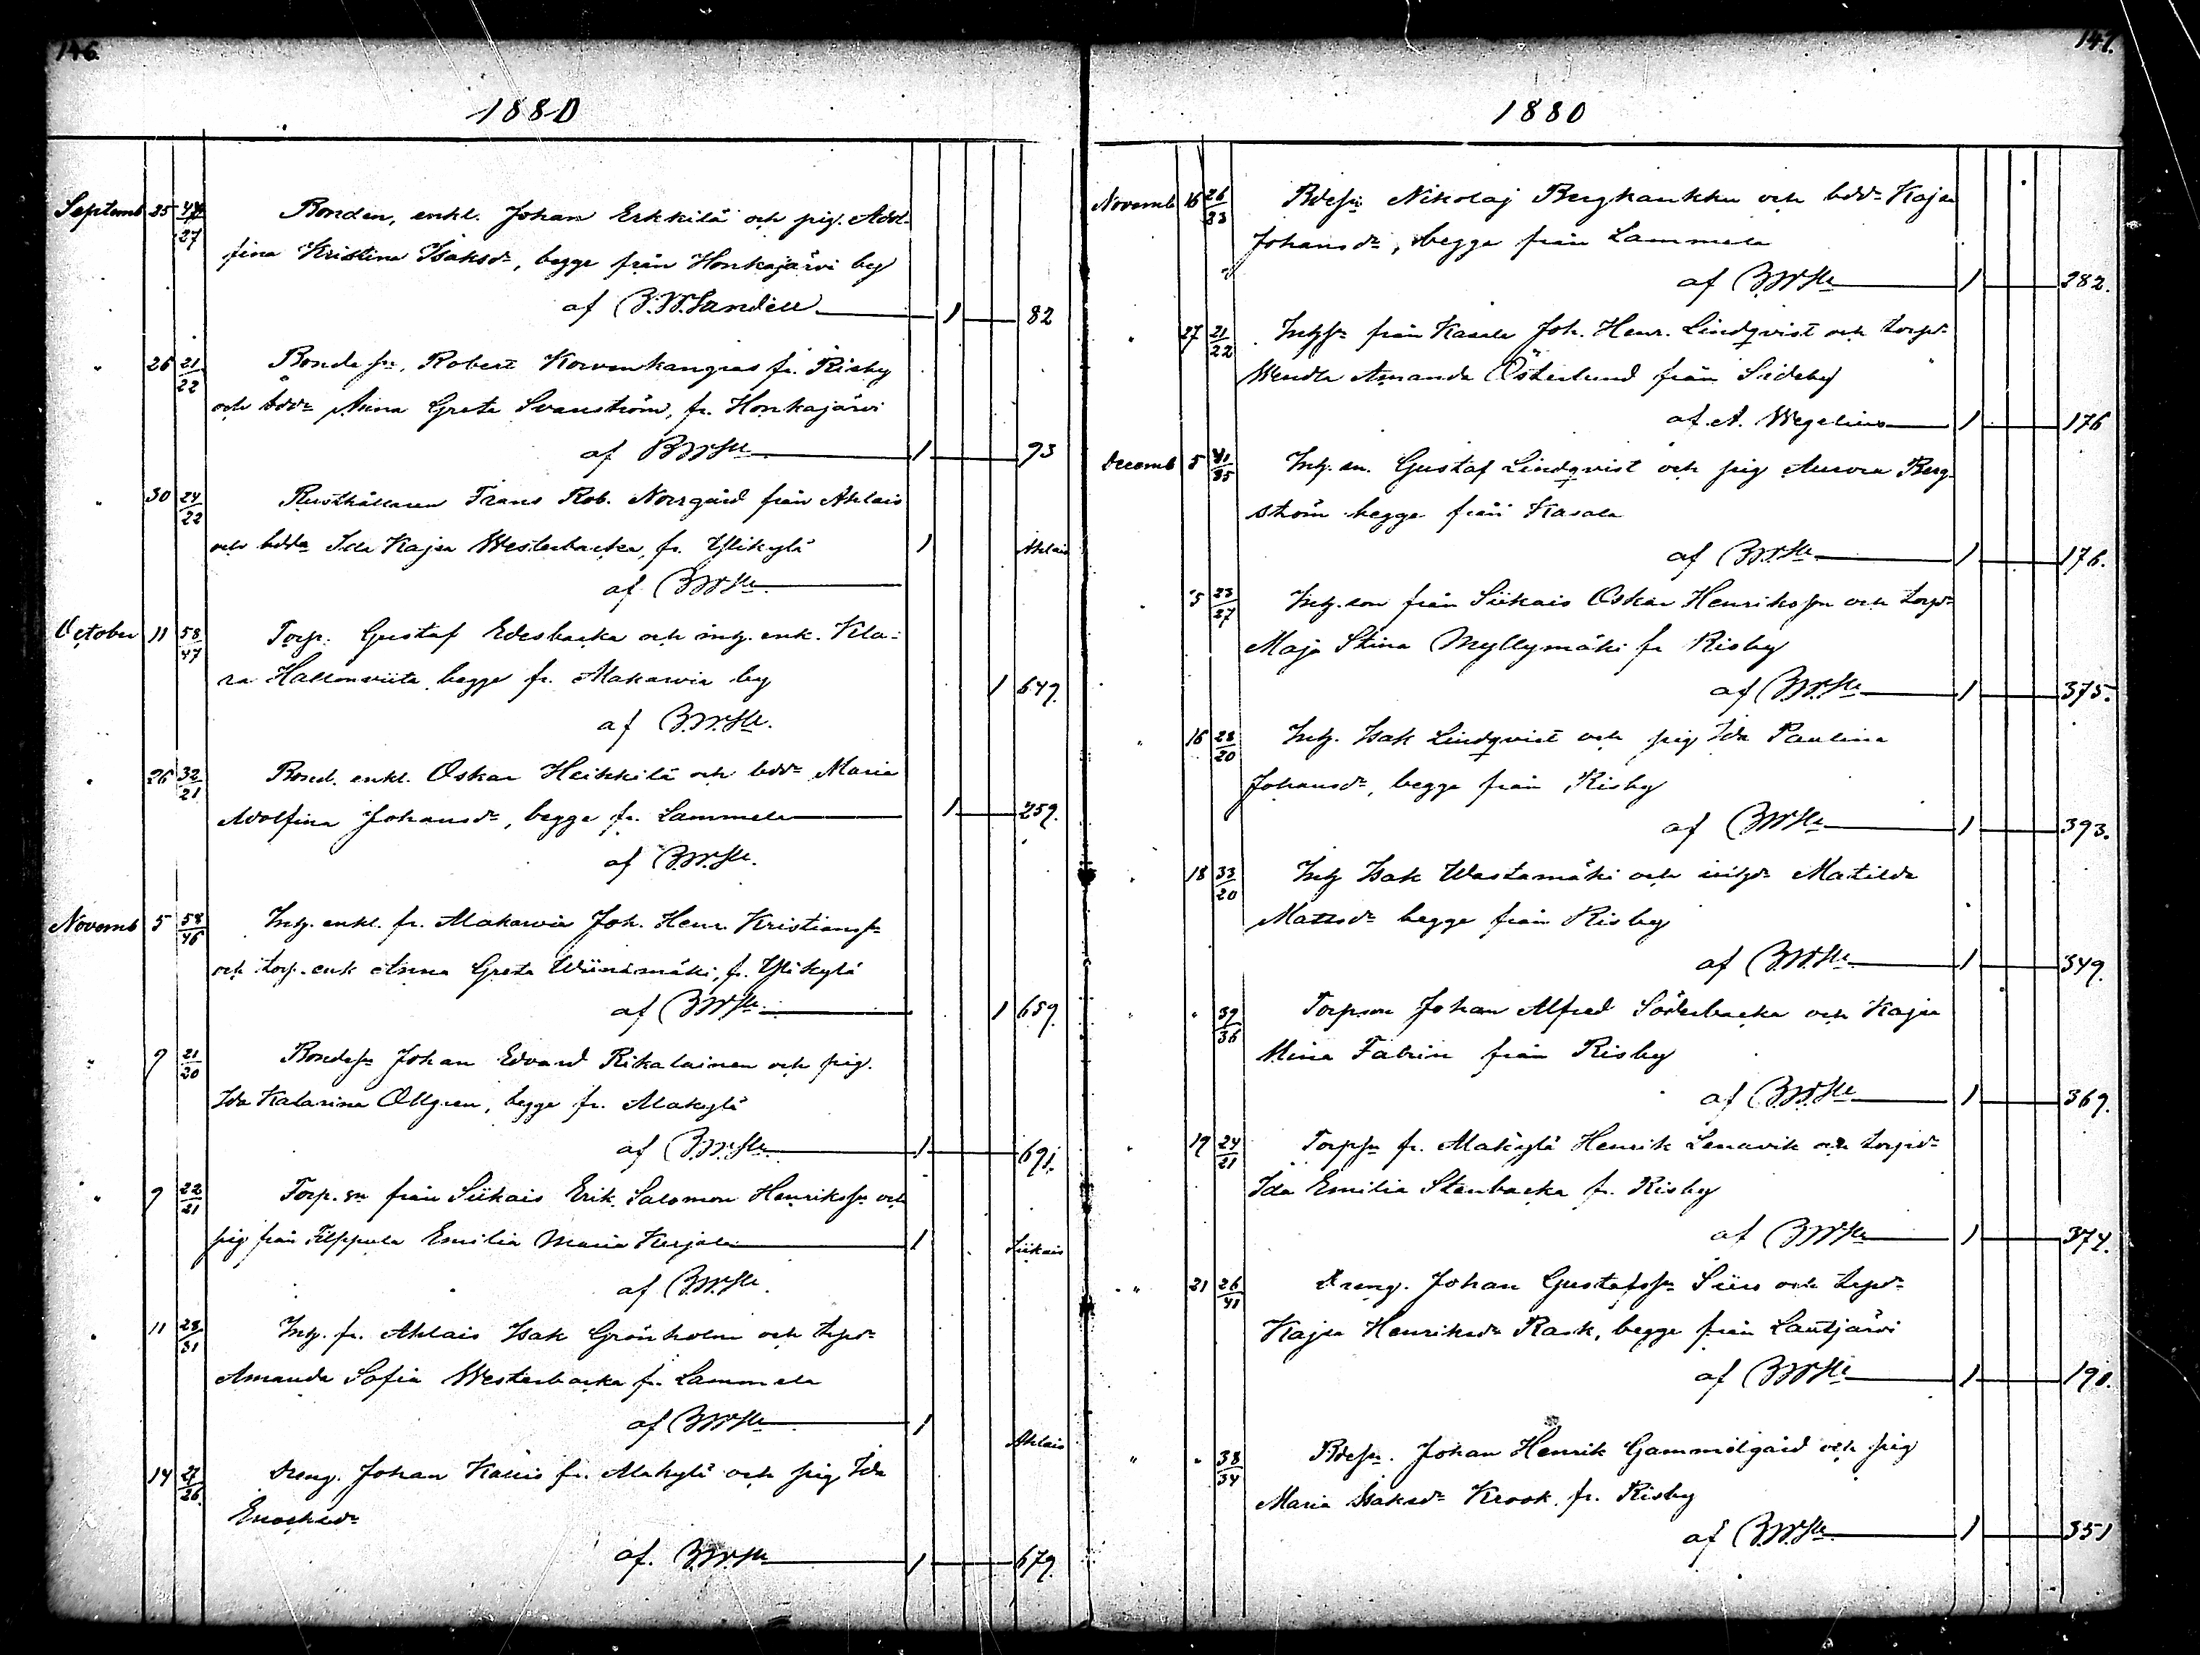 146.
1880
Septemb 25 44/27 Bonden, enkl. Johan Erkkilä och pig. Adol-
fina Kristina Isaksdr, begge från Honkajärvi by
af B.W.Sandell 1 82
" 26 21/22 Bondesn, Robert Korvenkangas fr. Risby
och bddr Anna Greta Svanström, fr. Honkajärvi
af BWSll 1 93
" 30 24/22 Rusthållaren Frans Rob. Norrgård från Ahlais
och bddr Ida Kajsa Westerbacka, fr. Ylikylä 1 Ahlais
af BWSll
October 11 58/47 Torp. Gustaf Edesbacka och inh. enk. Kla-
ra Hallonviita begge fr. Makarvia by 1 649.
af B.W.Sll.
" 26 32/21 Bond. enkl. Oskar Heikkilä och bddr Maria
Adolfina Johansdr, begge fr. Lammela 1 259.
af B.W.Sll.
Novemb 5 58/46 Inh. enkl. fr. Makarvia Joh. Henr. Kristianssn
och torp. enk Anna Greta Wiinamäki, fr. Ylikylä
af BWSll 1 659.
" 9 21/20 Bondesn Johan Edvard Rikalainen och pig.
Ida Katarina Ollgren, begge fr. Makylä
af B.W.Sll 1 691.
" 9 22/21 Torp. sn från Siikais Erik Salomon Henrikssn och
pig från Filppula Emilia Maria Karjala 1 Siikais
af B.W.Sll.
" 11 28/31 Inh. fr. Ahlais Isak Grönholm och tpdr
Amanda Sofia Westerbacka fr. Lammela
af BWSll 1
Ahlais
14 27/26 Dreng. Johan Kallis fr. Makylä och pig Ida
Enochsdr
af. B.W.Sll 1 679.
147.
1880
Novemb 16 26/23 Bdesn Nikolaj Bergkaukku och bddr Kajsa
Johansdr, begge från Lammela
af B.W.Sll 1 282.
" 27 21/22 Inhsn från Kasala Joh. Henr. Lindqvist och torpdr
Wendla Amanda Österlund från Sideby
af A. Wegelius 1 176
Decemb 5 41/35 Inh. sn. Gustaf Lindqvist och pig Aurora Berg-
ström begge från Kasala
af B.W.Sll 1 176.
" 5 23/27 Inh. son från Siikais Oskar Henrikssn och torpdr
Maja Stina Myllymäki fr Risby
af B.W.Sll 1 375.
" 16 28/20 Inh. Isak Lindqvist och pig Ida Paulina
Johansdr, begge från Risby
af BWSll 1 393.
" 18 33/20 Inh Isak Wastamäki och inhdr Matilda
Mattsdr begge från Risby
af B.W.Sll 1 349.
" " 39/36 Torpson Johan Alfred Söderbacka och Kajsa
Mina Fabrin från Risby
af B.W.Sll 1 369.
" 19 24/21 Torpsn fr. Makylä Henrik Lenavik och torpdr
Ida Emilia Stenbacka fr. Risby
af BWSll 1 374.
" 21 26/41 Dreng. Johan Gustafssn Siirs och tpdr
Kajsa Henriksdr Rask, begge från Lautjärvi
af BWSll 1 191.
" " 38/34 Bdesn. Johan Henrik Gammelgård och pig
Maria Isaksdr Krook fr. Risby
af B.W.Sll 1 351